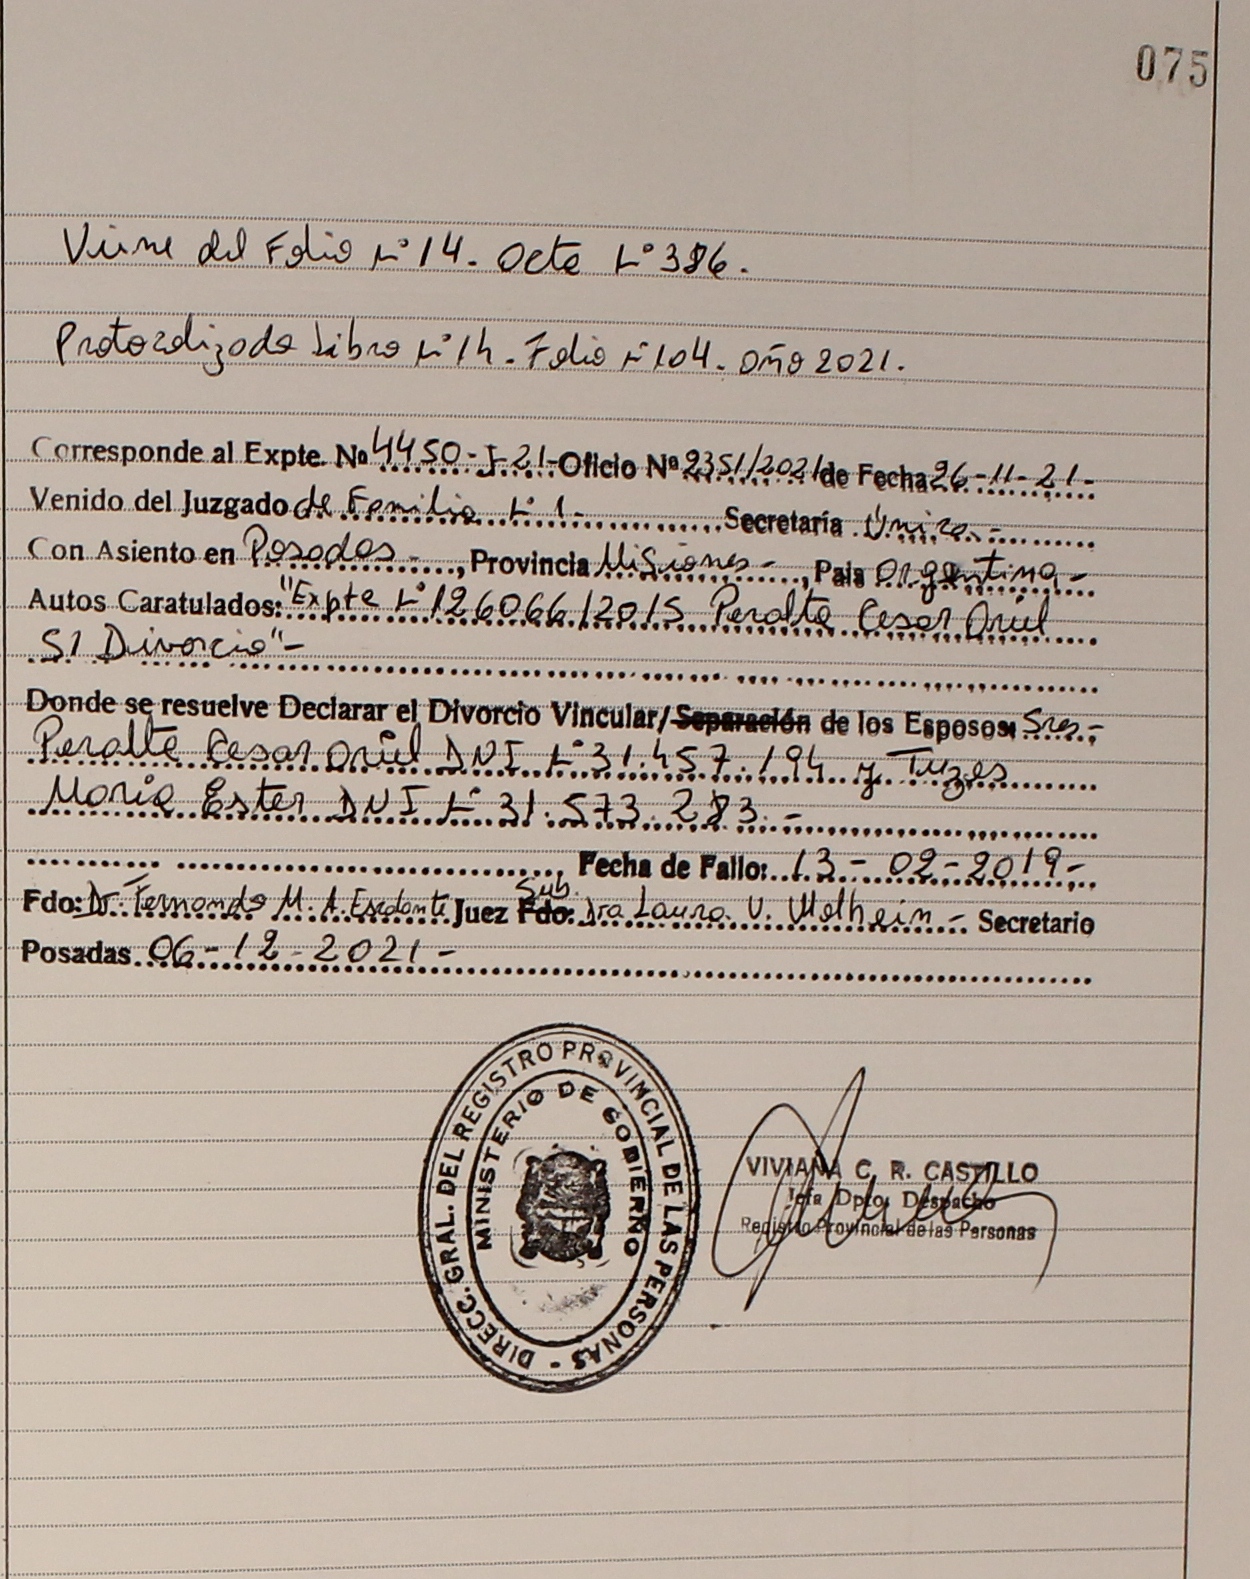 075
Viene del Folio Nº 14. Acta Nº 386.
Protocolizado Libro Nº 14. Folio Nº 104. Año 2021.
Corresponde al Expte. Nº 4450-J-21- Oficio Nº 2351/2021 de Fecha 26-11-21-
Venido del Juzgado de Familia Nº 1- Secretaría Única-
Con Asiento en Posadas-, Provincia Misiones-, Pais Argentina-
Autos Caratulados: "Expte Nº 126066/2015 Peralta Cesar Ariel
S/ Divorcio"-
Donde se resuelve Declarar el Divorcio Vincular/Separación de los Esposos: Sres.-
Peralta Cesar Ariel DNI Nº 31.457.194 y Tuzes
Maria Ester DNI Nº 31.573.283.-
Fecha de Fallo: 13-02-2019-
Fdo: Dr. Fernando M. A. Escalante Juez Sub. Fdo: Dra Laura V. - Secretario
Posadas 06-12-2021-
DIRECC. GRAL. DEL REGISTRO PROVINCIAL DE LAS PERSONAS -
MINISTERIO DE GOBIERNO
VIVIANA C. R. CASTILLO
Jefa Dpto. Despacho
Registro Provincial de las Personas